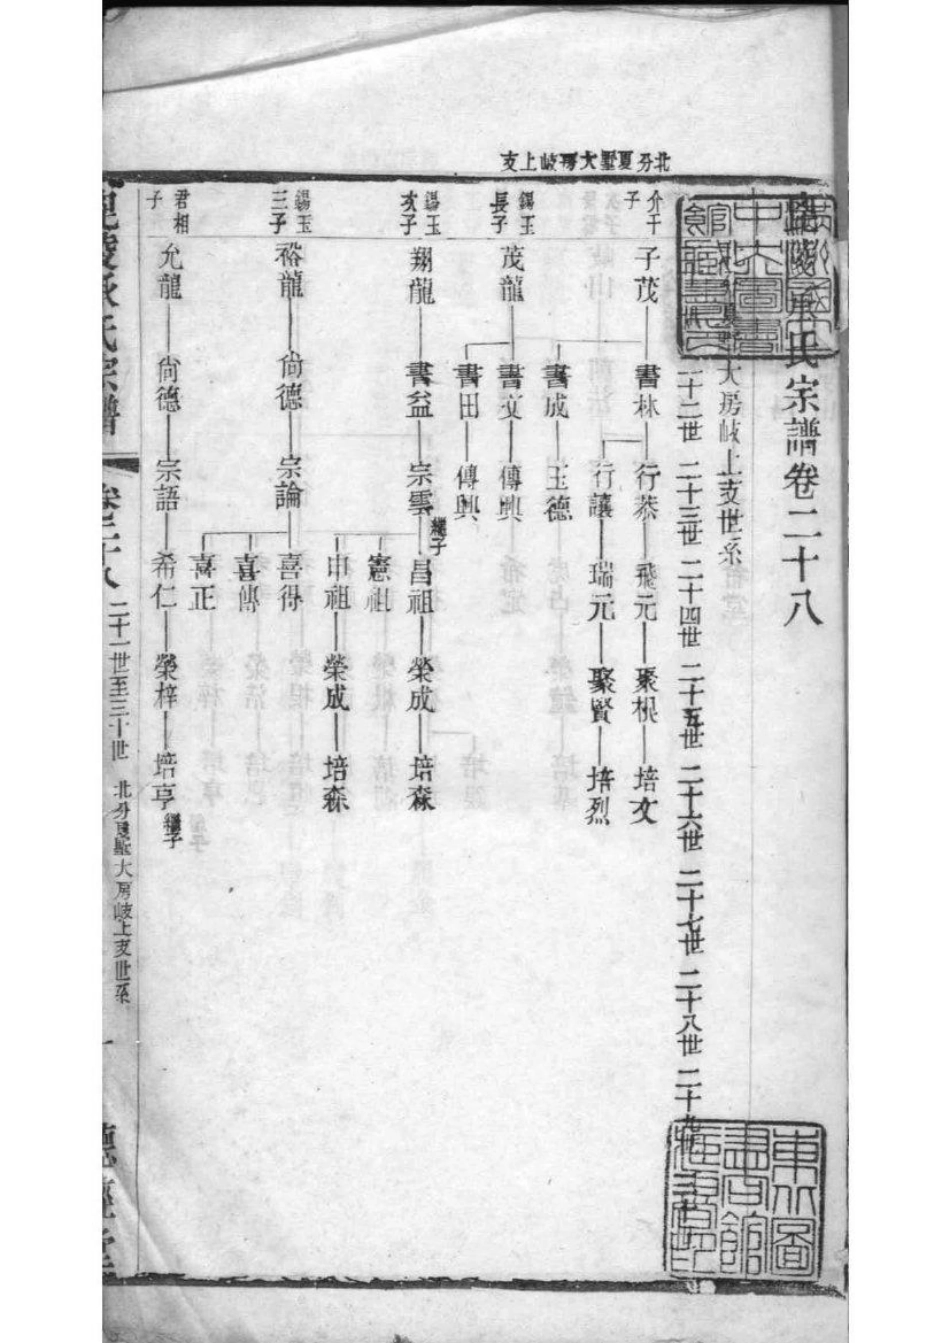 北分夏墅大房岐上支
毘陵承氏宗譜卷二十八
大房岐上支世系
二十二世 二十三世 二十四世 二十五世 二十六世 二十七世 二十八世 二十九世
介千子
子茂 書林 行恭 飛元 聚根 培文
行讓 瑞元 聚賢 培烈
書成 玉德
錫玉長子
茂龍 書文 傳興
書田 傳興
錫玉次子
翔龍 書益 宗雲 繼子 昌祖 榮成 培森
憲祖
申祖 榮成 培森
錫玉三子
裕龍 尙德 宗論 喜得
喜傳
喜正
君相子
允龍 尙德 宗語 希仁 榮梓 培亨 繼子
毘陵承氏宗譜 卷二十八 二十一世至三十世 北分夏墅大房岐上支世系 一
東北圖書館